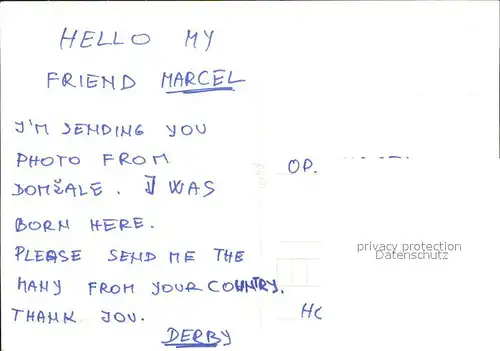 HELLO MY
FRIEND MARCEL
I'M SENDING YOU
PHOTO FROM
DOMŽALE. I WAS
BORN HERE.
PLEASE SEND ME THE
MANY FROM YOUR COUNTRY.
THANK YOU.
DERBY
OP.
privacy protection
Datenschutz
HC